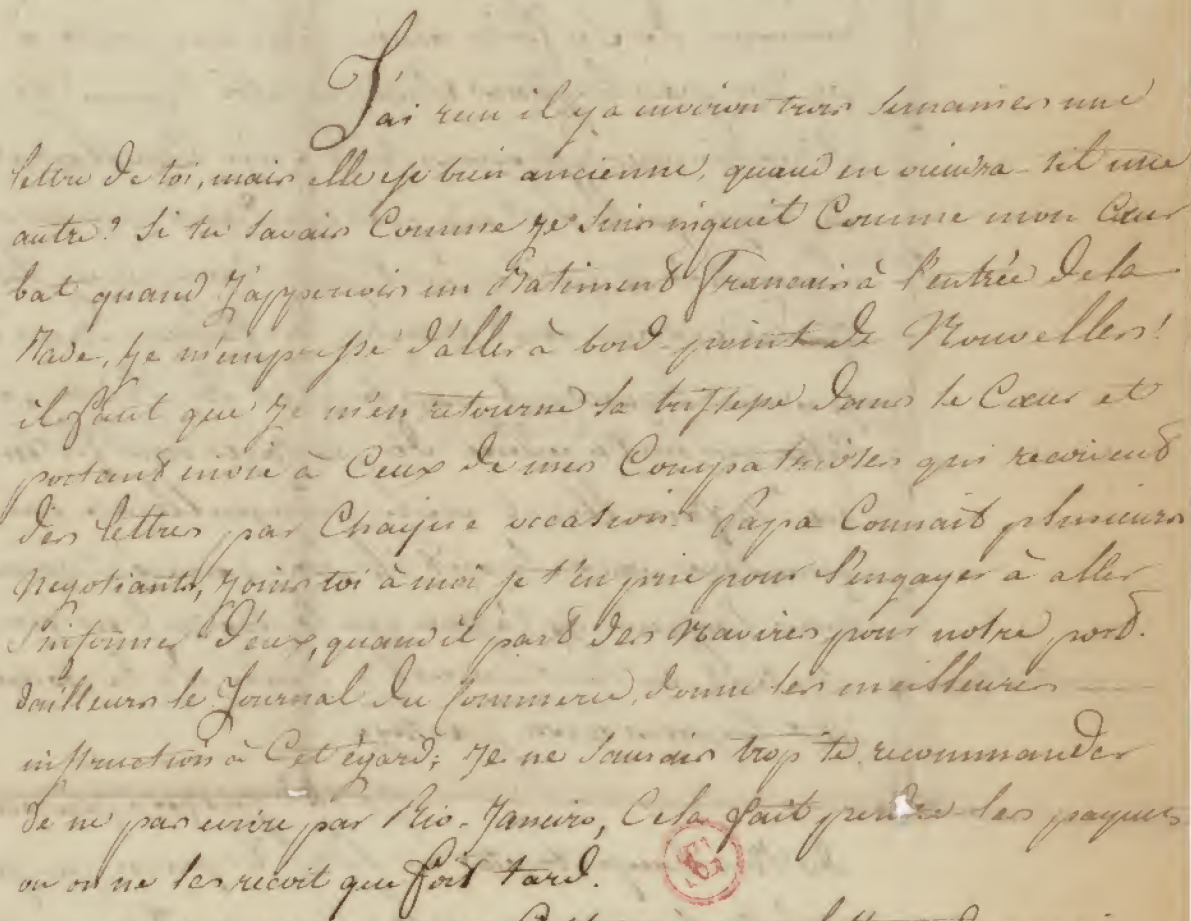 J'ai reçu il y a environ trois semaines une
lettre de toi, mais elle est bien ancienne, quand en viendra-til une
autre? Si tu savais Comme je suis inquiet Comme mon Cœur
bat quand J'apperçois un Batiment Français à l'entrée de la
Rade, je m'empresse d'aller à bord point de Nouvelles!
il faut que Je m'en retourne la tristesse dans le Cœur et
portant envie à Ceux de mes Compatriotes qui recoivent
des lettres par Chaque occasion. Papa Connait plusieurs
Negotiants, joins toi à moi je t'en prie pour l'engager à aller
s'informer d'eux, quand il part des Navires pour notre port.
dailleurs le Journal du Commerce, donne les meilleures
instruction à Cet égard; Je ne saurais trop te recommander
de ne pas ecrire par Rio-Janeiro, Cela fait perdre les paquets
ou on ne les reçoit que fort tard.